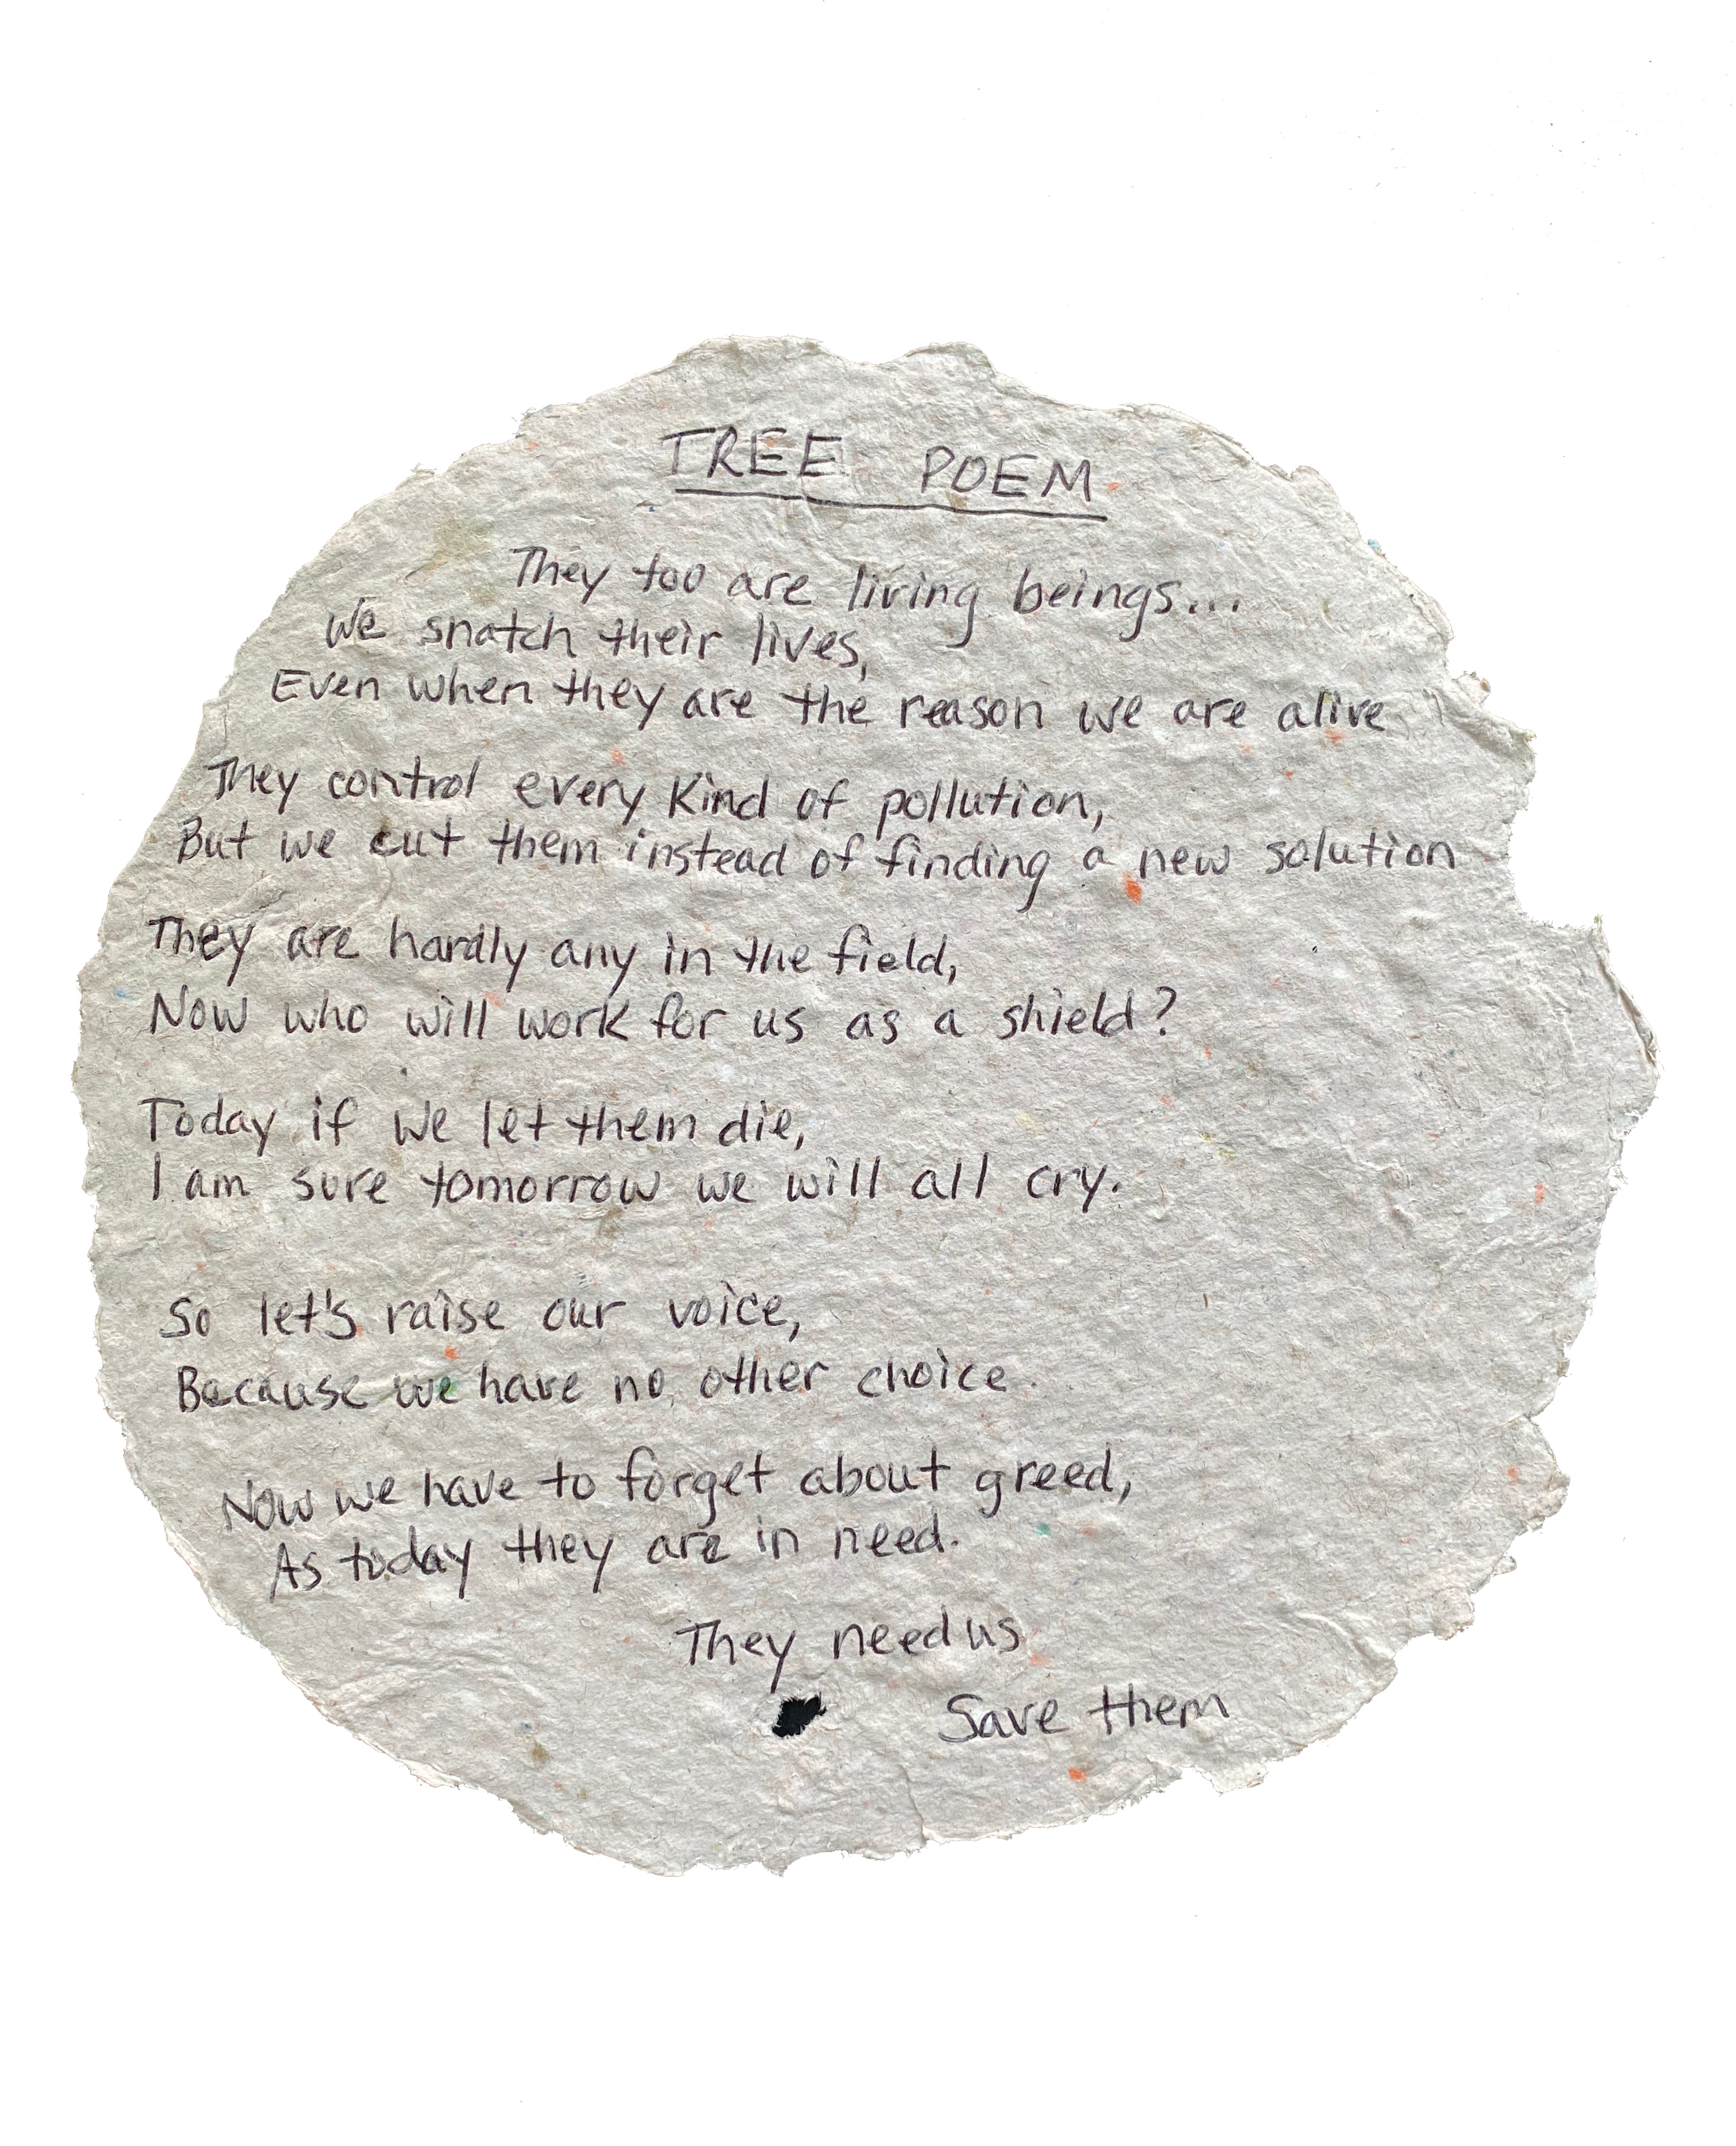 TREE POEM
They too are living beings...
We snatch their lives,
Even when they are the reason we are alive
They control every kind of pollution,
But we cut them instead of finding a new solution
They are hardly any in the field,
Now who will work for us as a shield?
Today if we let them die,
I am sure tomorrow we will all cry.
So let's raise our voice,
Because we have no other choice.
Now we have to forget about greed,
As today they are in need.
They need us
Save them